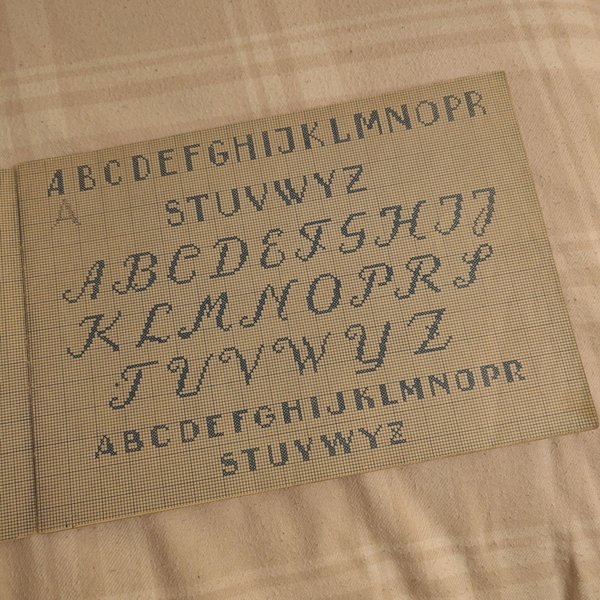 ABCDEFGHIJKLMNOPR
A
STUVWYZ
ABCDEFGHIJ
KLMNOPRS
TUVWYZ
ABCDEFGHIJKLMNOPR
STUVWYZ